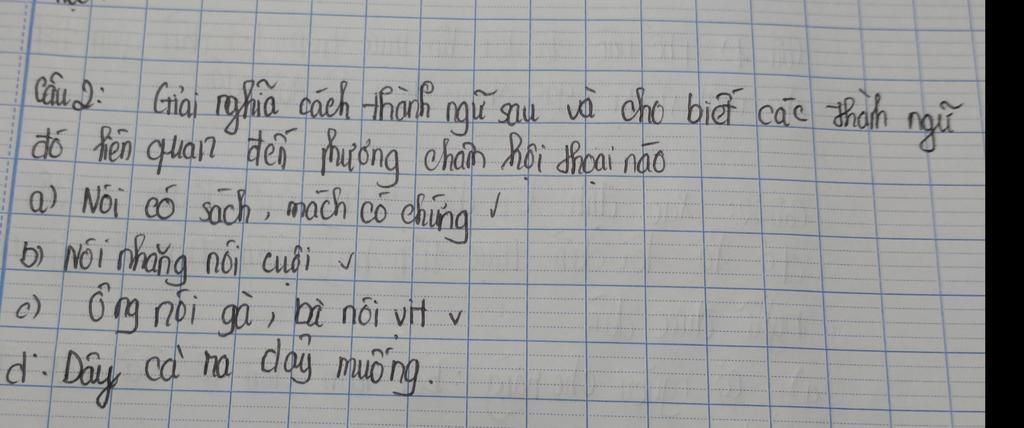 Câu 2: Giải nghĩa cách thành ngữ sau và cho biết các thành ngữ
đó liên quan đến phương châm hội thoại nào
a) Nói có sách, mách có chứng ✓
b) Nói nhăng nói cuội ✓
c) Ông nói gà, bà nói vịt ✓
d. Dây cà ra dây muống.